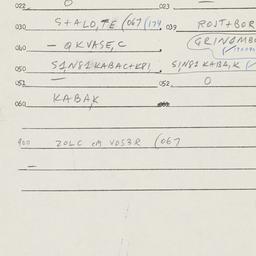 022 0 023 —
030 S+ALO,TE (067 (174 039 POJT+BOR
040 — QKVASE,C GRINOMBO
050 S1,N81KABAC+K81 S1N81 KABA,K
051 — 052 0
060 KABAK
900 ZOLC cM VDS3R (067
—